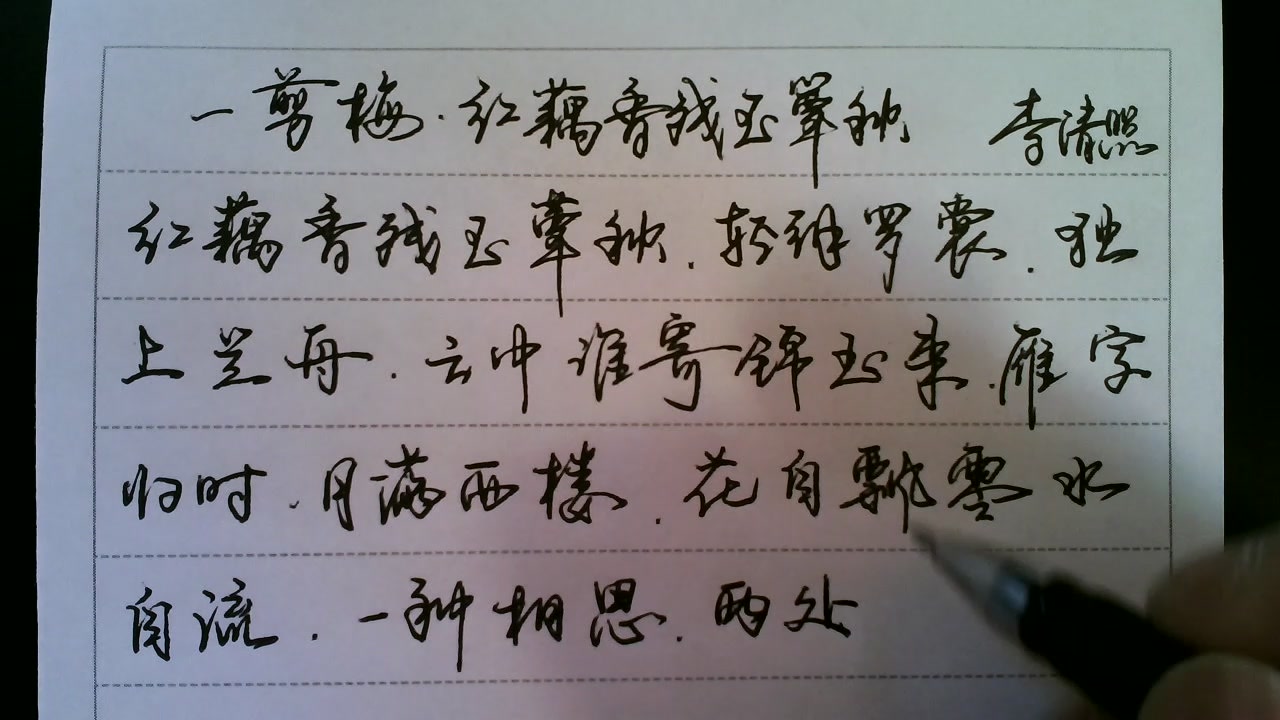 一剪梅·红藕香残玉簟秋 李清照
红藕香残玉簟秋.轻解罗裳.独
上兰舟.云中谁寄锦书来.雁字
归时.月满西楼.花自飘零水
自流.一种相思.两处